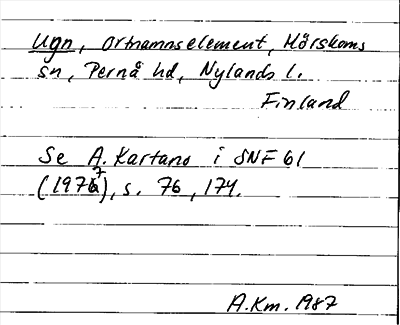 ugn, ortnamnselement, Mörskoms
sn, Pernå hd, Nylands l.
Finland
Se A. Kartano i SNF 61
(1977), s. 76, 174.
A.Km. 1987